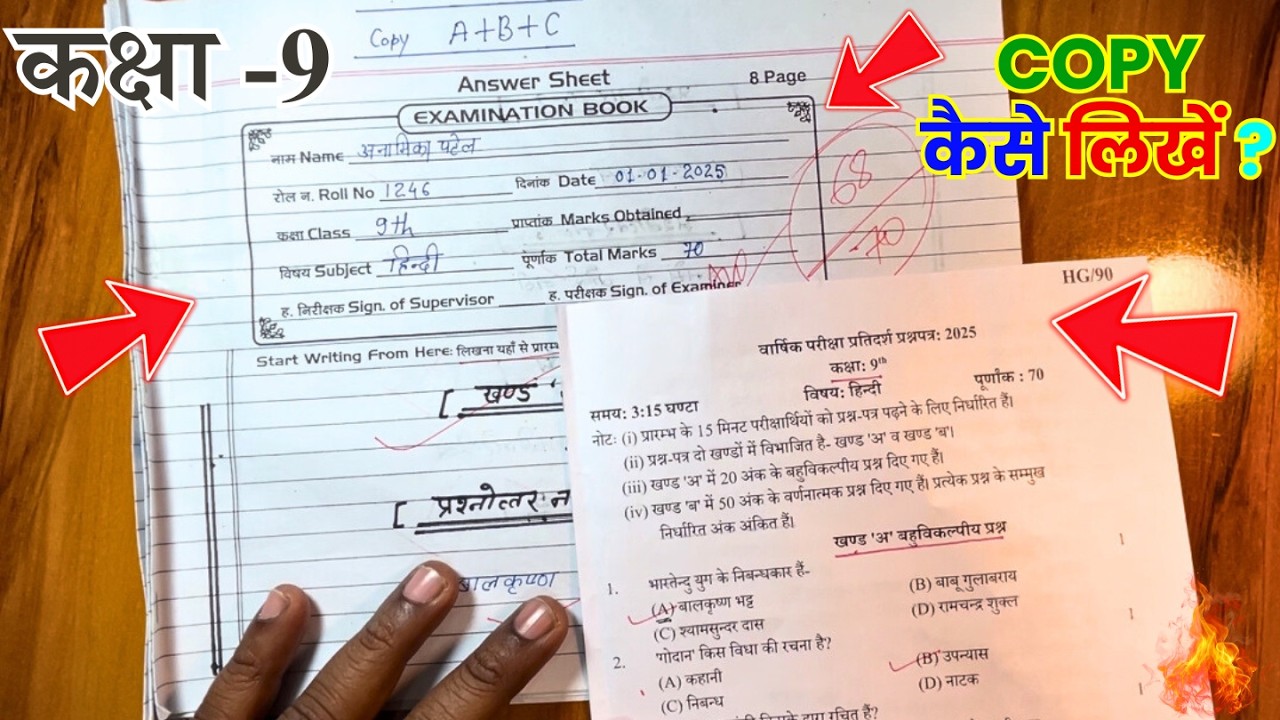 कक्षा -9
COPY
कैसे लिखें ?
Copy A+B+C
Answer Sheet 8 Page
EXAMINATION BOOK
नाम Name अनामिका पटेल
रोल न. Roll No 1246 दिनांक Date 01-01-2025
कक्षा Class 9th प्राप्तांक Marks Obtained
विषय Subject हिन्दी पूर्णांक Total Marks 70
ह. निरीक्षक Sign. of Supervisor ह. परीक्षक Sign. of Examiner
68
70
Start Writing From Here: लिखना यहाँ से प्रारम्भ
[ खण्ड
[ प्रश्नोत्तर: न
बालकृष्ण
HG/90
वार्षिक परीक्षा प्रतिदर्श प्रश्नपत्र: 2025
कक्षा: 9th
समय: 3:15 घण्टा विषय: हिन्दी पूर्णांक : 70
नोट: (i) प्रारम्भ के 15 मिनट परीक्षार्थियों को प्रश्न-पत्र पढ़ने के लिए निर्धारित हैं।
(ii) प्रश्न-पत्र दो खण्डों में विभाजित है- खण्ड 'अ' व खण्ड 'ब'।
(iii) खण्ड 'अ' में 20 अंक के बहुविकल्पीय प्रश्न दिए गए हैं।
(iv) खण्ड 'ब' में 50 अंक के वर्णनात्मक प्रश्न दिए गए हैं। प्रत्येक प्रश्न के सम्मुख
निर्धारित अंक अंकित हैं।
खण्ड 'अ' बहुविकल्पीय प्रश्न
1. भारतेन्दु युग के निबन्धकार हैं- 1
(A) बालकृष्ण भट्ट (B) बाबू गुलाबराय
(C) श्यामसुन्दर दास (D) रामचन्द्र शुक्ल
2. 'गोदान' किस विधा की रचना है? 1
(A) कहानी (B) उपन्यास
(C) निबन्ध (D) नाटक
1